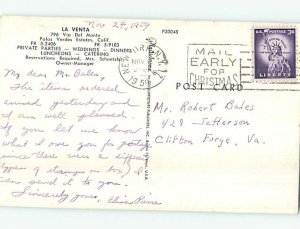 Nov 24, 1959
LA VENTA
796 Via Del Monte
Palos Verdes Estates, Calif.
FR 5-2406 FR 5-9103
PRIVATE PARTIES - WEDDINGS - DINNERS
LUNCHEONS - CATERING
Reservations Required, Mrs.
Owner-Manager
P30048
My dear Mr. Bales,
The items ordered
arrived yesterday and
I am well pleased.
If you let me know
what I owe you for postage
since there were a different
types of stamps on box, I
can send it to you.
Sincerely yours, Elsie
MAIL
EARLY
FOR
CHRISTMAS
3¢
LIBERTY
POST CARD
Mr. Robert Bales
429 Jefferson
Clifton Forge, Va.